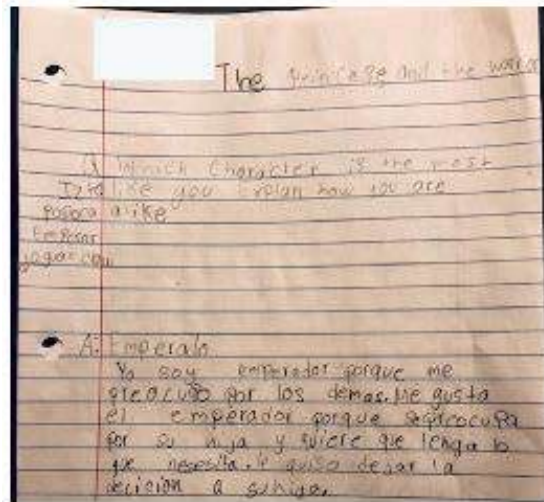 The princess and the warr
Q Which Character is the most
like you Explan how you are
alike
Izta
Popoca
A: Emperado
Yo soy emperador porque me
preocupo por los demas. Me gusta
el emperador porque sepreocupa
por su hija y quiere que tenga lo
que necesita. le quiso dejar la
decision a suhija.